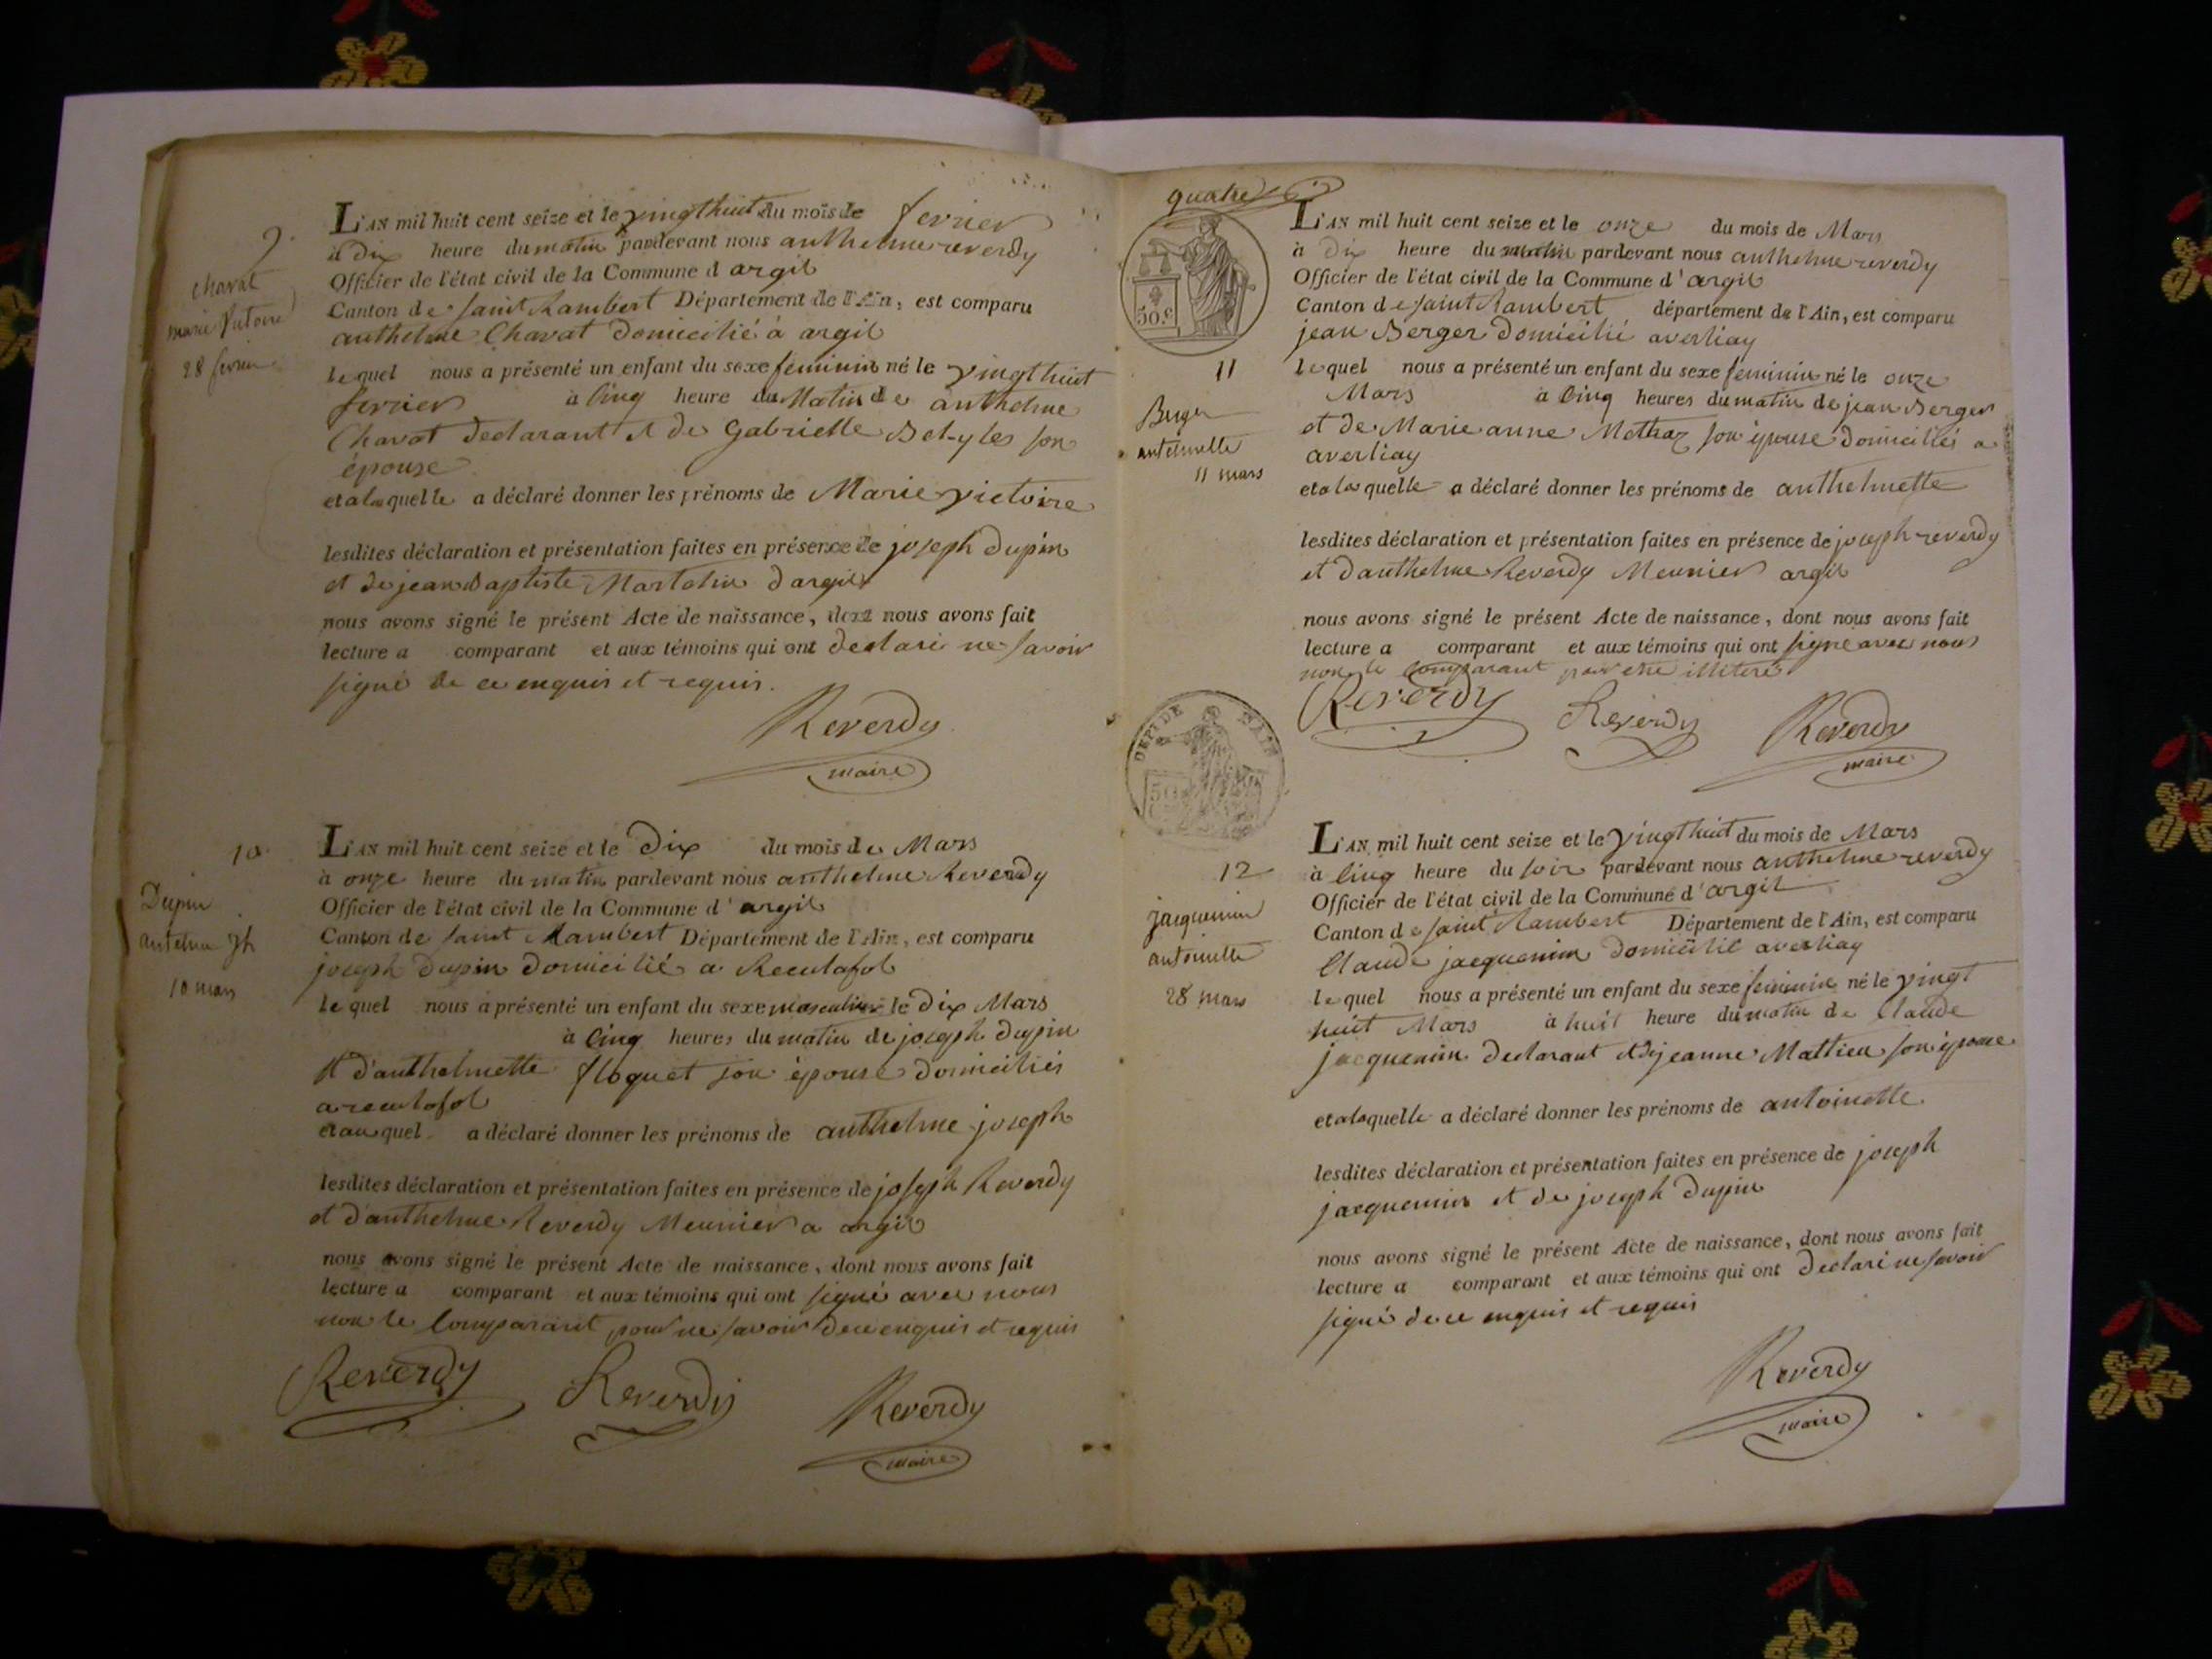 9.
chavat
marie Victoire
28 fevrier
L'AN mil huit cent seize et le vingthuit du mois de fevrier
à dix heure du matin pardevant nous anthelme reverdy
Officier de l'état civil de la Commune d argil
Canton de saint Rambert Département de l'Ain, est comparu
anthelme Chavat domicilié à argil
lequel nous a présenté un enfant du sexe feminin né le vingthuit
fevrier à cinq heure du Matin de anthelme
Chavat declarant et de Gabrielle son
épouse
et a laquelle a déclaré donner les prénoms de Marie victoire
lesdites déclaration et présentation faites en présence de joseph dupin
et de jean Baptiste Martelin d'argil
nous avons signé le présent Acte de naissance, dont nous avons fait
lecture a comparant et aux témoins qui ont declaré ne savoir
signé de ce enquis et requis.
Reverdy
maire
10.
Dupin
antelme jh
10 mars
L'AN mil huit cent seize et le dix du mois de Mars
à onze heure du matin pardevant nous anthelme Reverdy
Officier de l'état civil de la Commune d' argil
Canton de saint Rambert Département de l'Ain, est comparu
joseph dupin domicilié a Reculafol
le quel nous a présenté un enfant du sexe masculin né le dix Mars
à cinq heures du matin de joseph dupin
et d'anthelmette floquet son épouse domiciliés
a reculafol
et au quel a déclaré donner les prénoms de anthelme joseph
lesdites déclaration et présentation faites en présence de joseph Reverdy
et d'anthelme Reverdy Meunier a argil
nous avons signé le présent Acte de naissance, dont nous avons fait
lecture a comparant et aux témoins qui ont signé avec nous
non le Comparant pour ne savoir de ce enquis et requis
Reverdy Reverdy Reverdy
maire
quatre
50.c
11
Berger
antelmette
11 mars
L'AN mil huit cent seize et le onze du mois de Mars
à dix heure du matin pardevant nous anthelme reverdy
Officier de l'état civil de la Commune d' argil
Canton de saint Rambert département de l'Ain, est comparu
jean Berger domicilié averliay
lequel nous a présenté un enfant du sexe feminin né le onze
Mars à cinq heures du matin de jean Berger
et de Marie anne Methaz son épouse domiciliés a
averliay
et a la quelle a déclaré donner les prénoms de anthelmette
lesdites déclaration et présentation faites en présence de joseph reverdy
et d'anthelme Reverdy Meunier argil
nous avons signé le présent Acte de naissance, dont nous avons fait
lecture a comparant et aux témoins qui ont signé avec nous
non le comparant pour etre illiteré
Reverdy Reverdy Reverdy
maire
50
12
jacquemin
antoinette
28 mars
L'AN mil huit cent seize et le vingthuit du mois de Mars
à cinq heure du soir pardevant nous anthelme reverdy
Officier de l'état civil de la Commune d' argil
Canton de saint Rambert Département de l'Ain, est comparu
Claude jacquemin domicilié averliay
lequel nous a présenté un enfant du sexe feminin né le vingt
huit Mars à huit heure du matin de Claude
jacquemin declarant et de jeanne Mattieu son épouse
et a laquelle a déclaré donner les prénoms de antoinette
lesdites déclaration et présentation faites en présence de joseph
jacquemin et de joseph dupin
nous avons signé le présent Acte de naissance, dont nous avons fait
lecture a comparant et aux témoins qui ont declaré ne savoir
signé de ce enquis et requis
Reverdy
maire